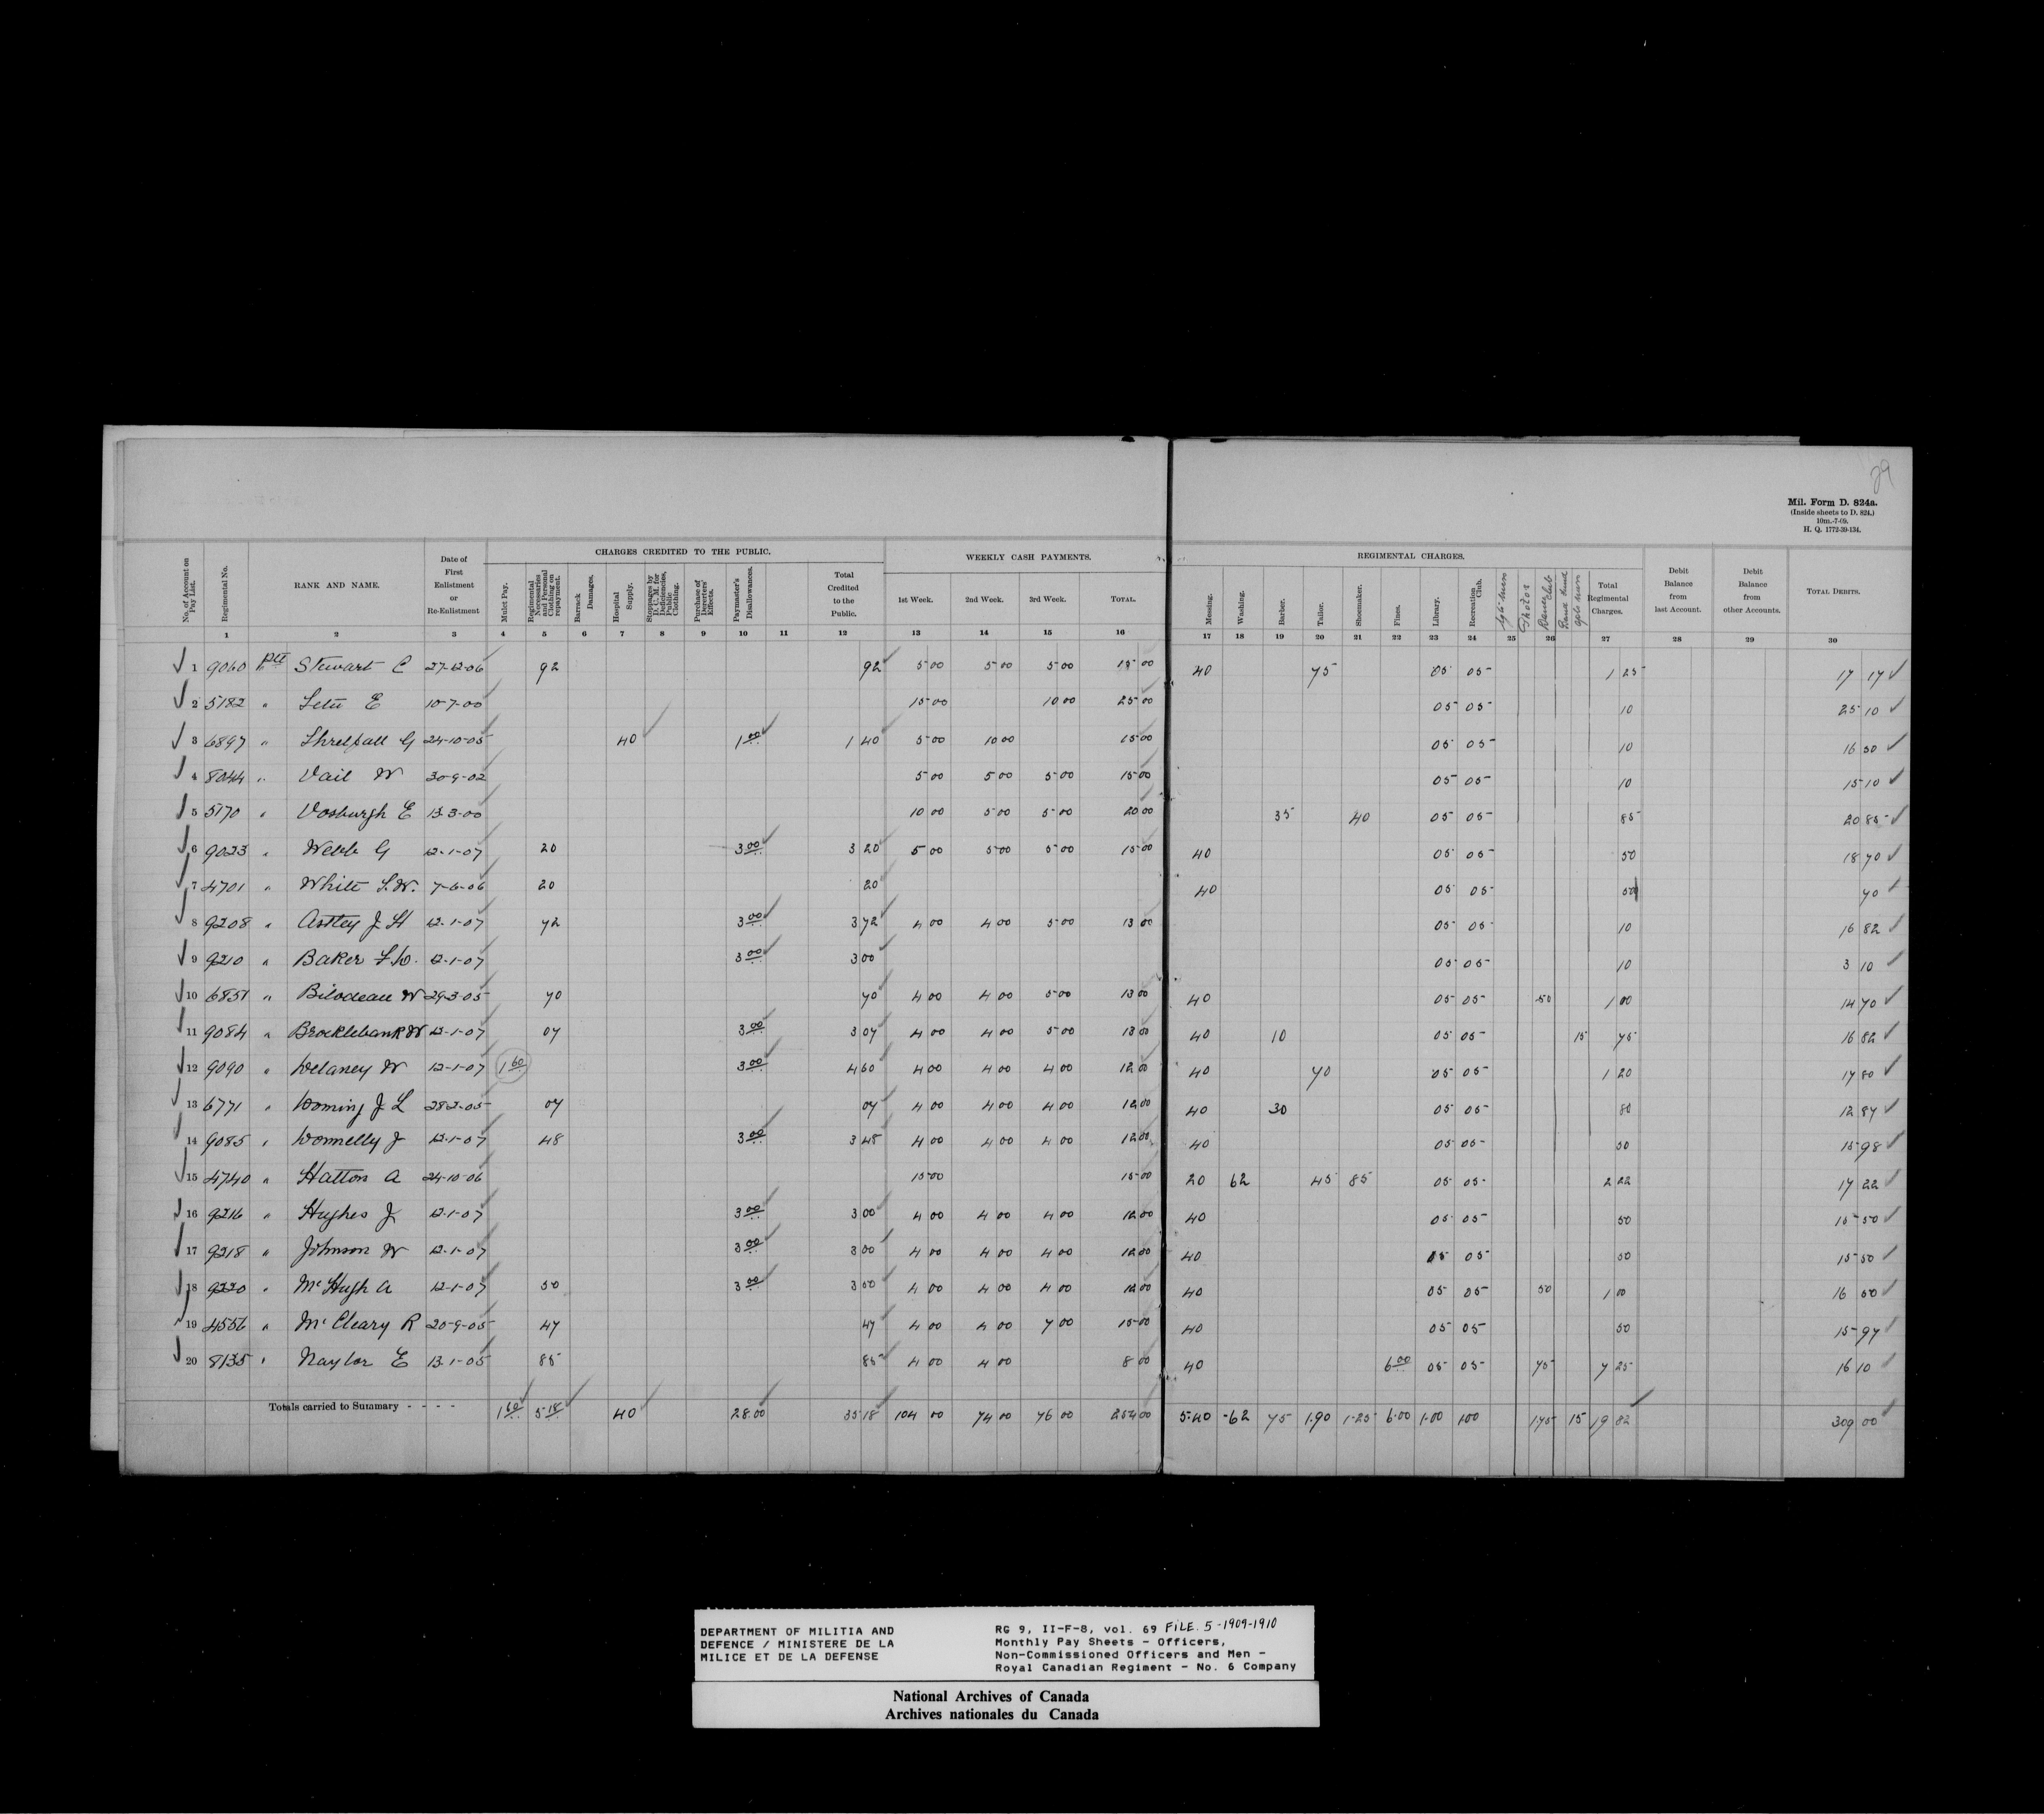 29
Mil. Form D. 824a.
(Inside sheets to D. 824.)
10m.-7-09.
H. Q. 1772-39-134.
CHARGES CREDITED TO THE PUBLIC. WEEKLY CASH PAYMENTS. REGIMENTAL CHARGES.
No. of Account on Pay List. Regimental No. RANK AND NAME. Date of First Enlistment or Re-Enlistment Mulct Pay. Regimental Necessaries and Personal Clothing on repayment. Barrack Damages. Hospital Supply. Stoppages by D. C. M. for Deficiencies, Public Clothing. Purchase of Deserters' Effects. Paymaster's Disallowances. Total Credited to the Public. 1st Week. 2nd Week. 3rd Week. TOTAL. Messing. Washing. Barber. Tailor. Shoemaker. Fines. Library. Recreation Club. Photos Dance Club Total Regimental Charges. Debit Balance from last Account. Debit Balance from other Accounts. TOTAL DEBITS.
1 2 3 4 5 6 7 8 9 10 11 12 13 14 15 16 17 18 19 20 21 22 23 24 25 26 27 28 29 30
1 9060 Pte Stewart C 27-12-06 92 92 5 00 5 00 5 00 15 00 40 75 05 05 1 25 17 17
2 5182 " E 10-7-00 15 00 10 00 25 00 05 05 10 25 10
3 6897 " Threlfall G 24-10-05 40 1 00 1 40 5 00 10 00 15 00 05 05 10 16 50
4 8044 " Vail W 30-9-02 5 00 5 00 5 00 15 00 05 05 10 15 10
5 5170 " Vosburgh E 13-3-00 10 00 5 00 5 00 20 00 35 40 05 05 85 20 85
6 9023 " Webb G 12-1-07 20 3 00 3 20 5 00 5 00 5 00 15 00 40 05 05 50 18 70
7 4701 " White S.W. 7-6-06 20 20 40 05 05 50 70
8 9208 " Astley J H 12-1-07 72 3 00 3 72 4 00 4 00 5 00 13 00 05 05 10 16 82
9 9210 " Baker 12-1-07 3 00 3 00 05 05 10 3 10
10 6851 " Bilodeau W 29-3-05 70 70 4 00 4 00 5 00 13 00 40 05 05 50 1 00 14 70
11 9084 " Brocklebank W 12-1-07 07 3 00 3 07 4 00 4 00 5 00 13 00 40 10 05 05 15 75 16 82
12 9090 " Delaney W 12-1-07 1 60 3 00 4 60 4 00 4 00 4 00 12 00 40 70 05 05 1 20 17 80
13 6771 " Doming J L 28-2-05 07 07 4 00 4 00 4 00 12 00 40 30 05 05 80 12 87
14 9085 " Donnelly J 12-1-07 48 3 00 3 48 4 00 4 00 4 00 12 00 40 05 05 50 15 98
15 4740 " Hatton A 24-10-06 15 00 15 00 20 62 45 85 05 05 2 22 17 22
16 9216 " Hughes J 12-1-07 3 00 3 00 4 00 4 00 4 00 12 00 40 05 05 50 15 50
17 9218 " Johnson W 12-1-07 3 00 3 00 4 00 4 00 4 00 12 00 40 05 05 50 15 50
18 9220 " McHugh A 12-1-07 50 3 00 3 50 4 00 4 00 4 00 12 00 40 05 05 50 1 00 16 50
19 4556 " McCleary R 20-9-05 47 47 4 00 4 00 7 00 15 00 40 05 05 50 15 97
20 8135 " Naylor E 13-1-05 85 85 4 00 4 00 8 00 40 6 00 05 05 75 7 25 16 10
Totals carried to Summary - - - - 1 60 5 18 40 28 00 35 18 104 00 74 00 76 00 254 00 5.40 .62 75 1.90 1.25 6.00 1.00 1.00 1.75 15 19 82 309 00
DEPARTMENT OF MILITIA AND
DEFENCE / MINISTERE DE LA
MILICE ET DE LA DEFENSE
RG 9, II-F-8, vol. 69 FILE. 5 -1909-1910
Monthly Pay Sheets - Officers,
Non-Commissioned Officers and Men -
Royal Canadian Regiment - No. 6 Company
National Archives of Canada
Archives nationales du Canada